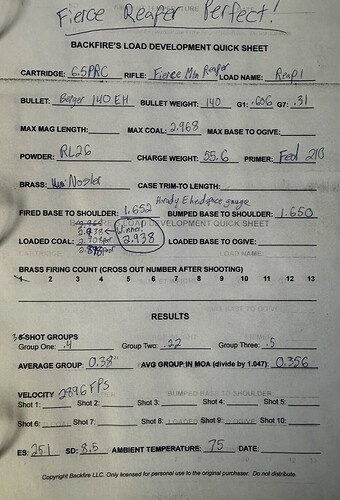 Fierce Reaper Perfect!
BACKFIRE'S LOAD DEVELOPMENT QUICK SHEET
CARTRIDGE: 6.5PRC RIFLE: Fierce Mtn Reaper LOAD NAME: Reap1
BULLET: Berger 140 EH BULLET WEIGHT: 140 G1: .606 G7: .31
MAX MAG LENGTH: MAX COAL: 2.968 MAX BASE TO OGIVE:
POWDER: RL26 CHARGE WEIGHT: 55.6 PRIMER: Fed 210
BRASS: Nosler CASE TRIM-TO LENGTH:
Hornady Headspace gauge
FIRED BASE TO SHOULDER: 1.652 BUMPED BASE TO SHOULDER: 1.650
LOADED COAL: 2.938 Winner 2.938 LOADED BASE TO OGIVE:
2.908
2.878
BRASS FIRING COUNT (CROSS OUT NUMBER AFTER SHOOTING)
1 2 3 4 5 6 7 8 9 10 11 12 13
RESULTS
3-SHOT GROUPS
Group One: .4 Group Two: .22 Group Three: .5
AVERAGE GROUP: 0.38" AVG GROUP IN MOA (divide by 1.047): 0.356
VELOCITY 2896 FPS
Shot 1: Shot 2: Shot 3: Shot 4: Shot 5:
Shot 6: Shot 7: Shot 8: Shot 9: Shot 10:
ES: 25.1 SD: 8.5 AMBIENT TEMPERATURE: 75 DATE:
Copyright Backfire LLC. Only licensed for personal use to the original purchaser. Do not distribute.